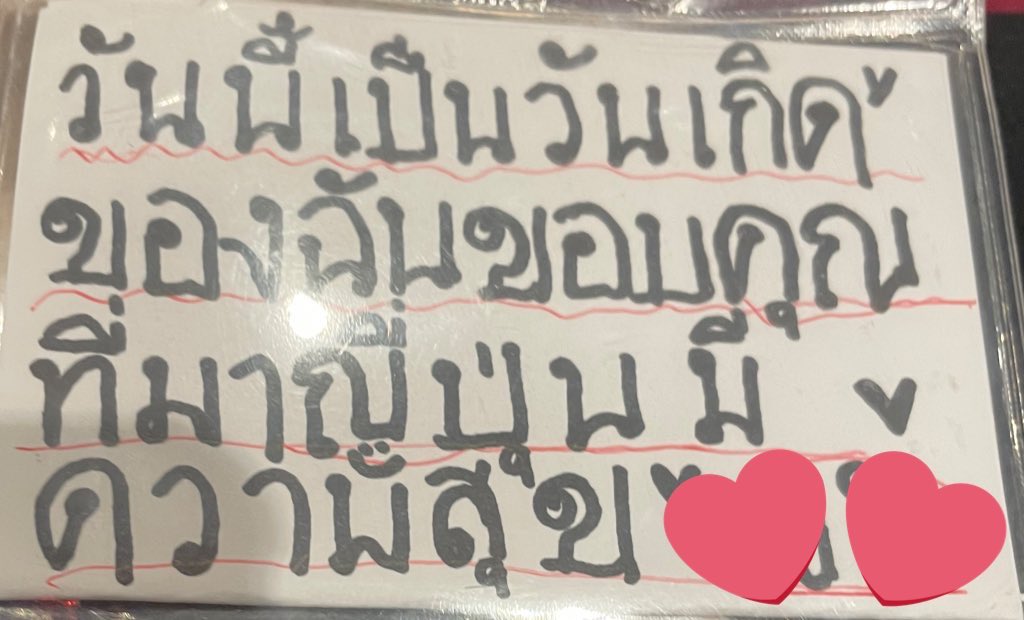 วันนี้เป็นวันเกิด
ของฉันขอบคุณ
ที่มาญี่ปุ่น มี
ความสุข